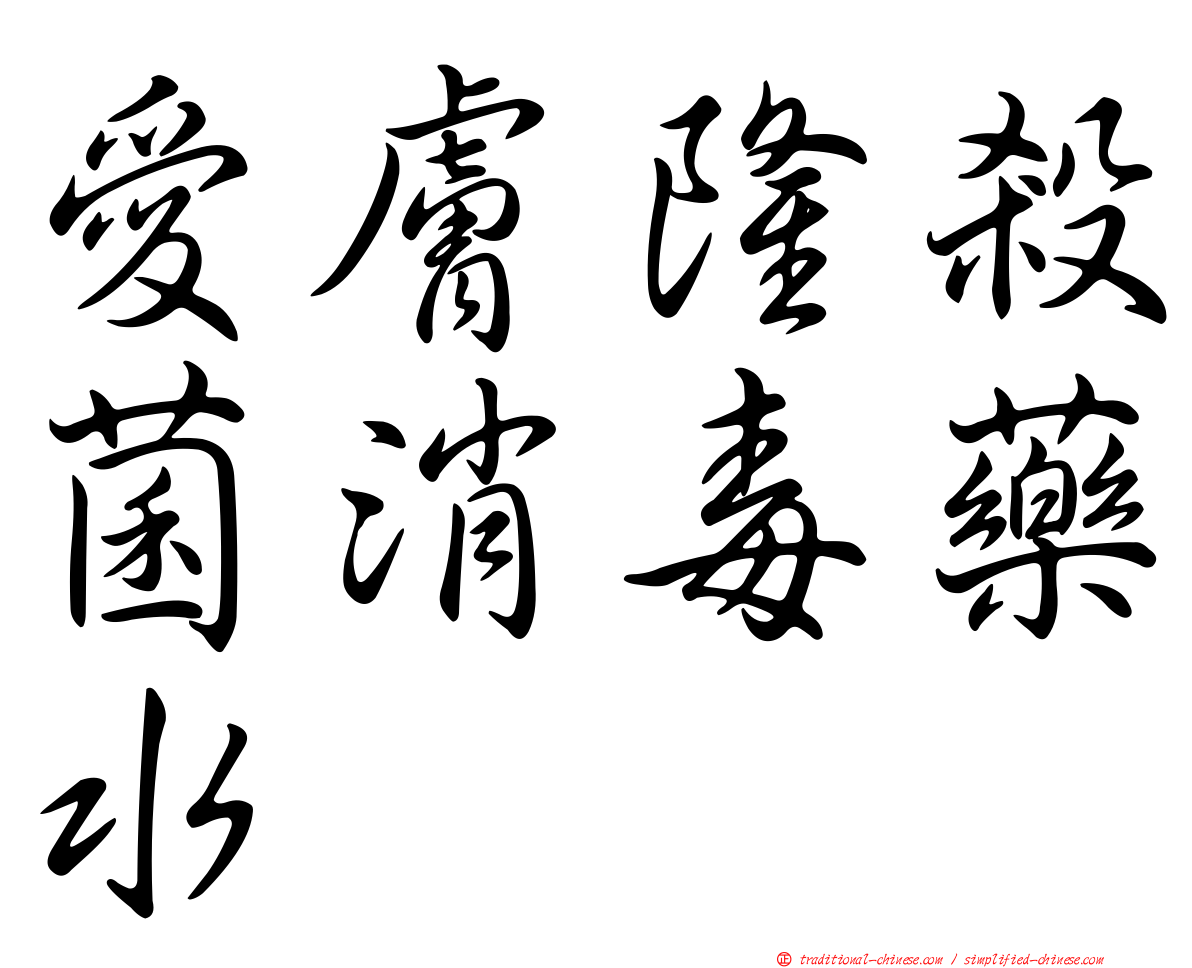 愛膚隆殺
菌消毒藥
水
正 traditional-chinese.com / simplified-chinese.com